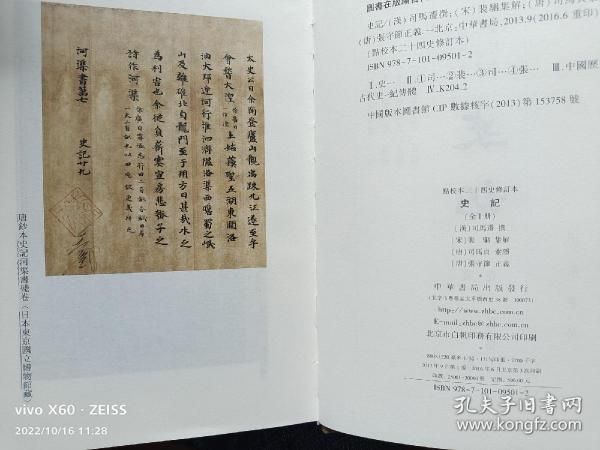 太史公曰余南登廬山觀禹疏九江遂至于
會稽大湟
上姑蘇望五湖東闚洛
汭大邳迎河行淮泗濟漯洛渠西瞻蜀之岷
山及離碓北自龍門至于朔方曰甚哉水之
為利害也余從負薪塞宣房悲瓠子之
詩作河渠
河渠書第七
史記廿九
唐鈔本史記河渠書殘卷(日本東京國立博物館藏)
圖書在版編目
史記/(漢)司馬遷撰;(宋)裴駰集解;(唐)司馬貞索隱;
(唐)張守節正義.—北京:中華書局,2013.9(2016.6重印)
(點校本二十四史修訂本)
ISBN 978-7-101-09501-2
Ⅰ.史… Ⅱ.①司…②裴…③司…④張… Ⅲ.中國歷
古代史-紀傳體 Ⅳ.K204.2
中國版本圖書館CIP數據核字(2013)第153758號
點校本二十四史修訂本
史記
(全十册)
〔漢〕司馬遷 撰
〔宋〕裴駰 集解
〔唐〕司馬貞 索隱
〔唐〕張守節 正義
中華書局出版發行
(北京市豐臺區太平橋西里38號 100073)
http://www.zhbc.com.cn
E-mail:zhbc@zhbc.com.cn
北京市白帆印務有限公司印刷
ISBN 978-7-101-09501-2
vivo X60 · ZEISS
2022/10/16 11:28
孔夫子旧書网
kongfz.com